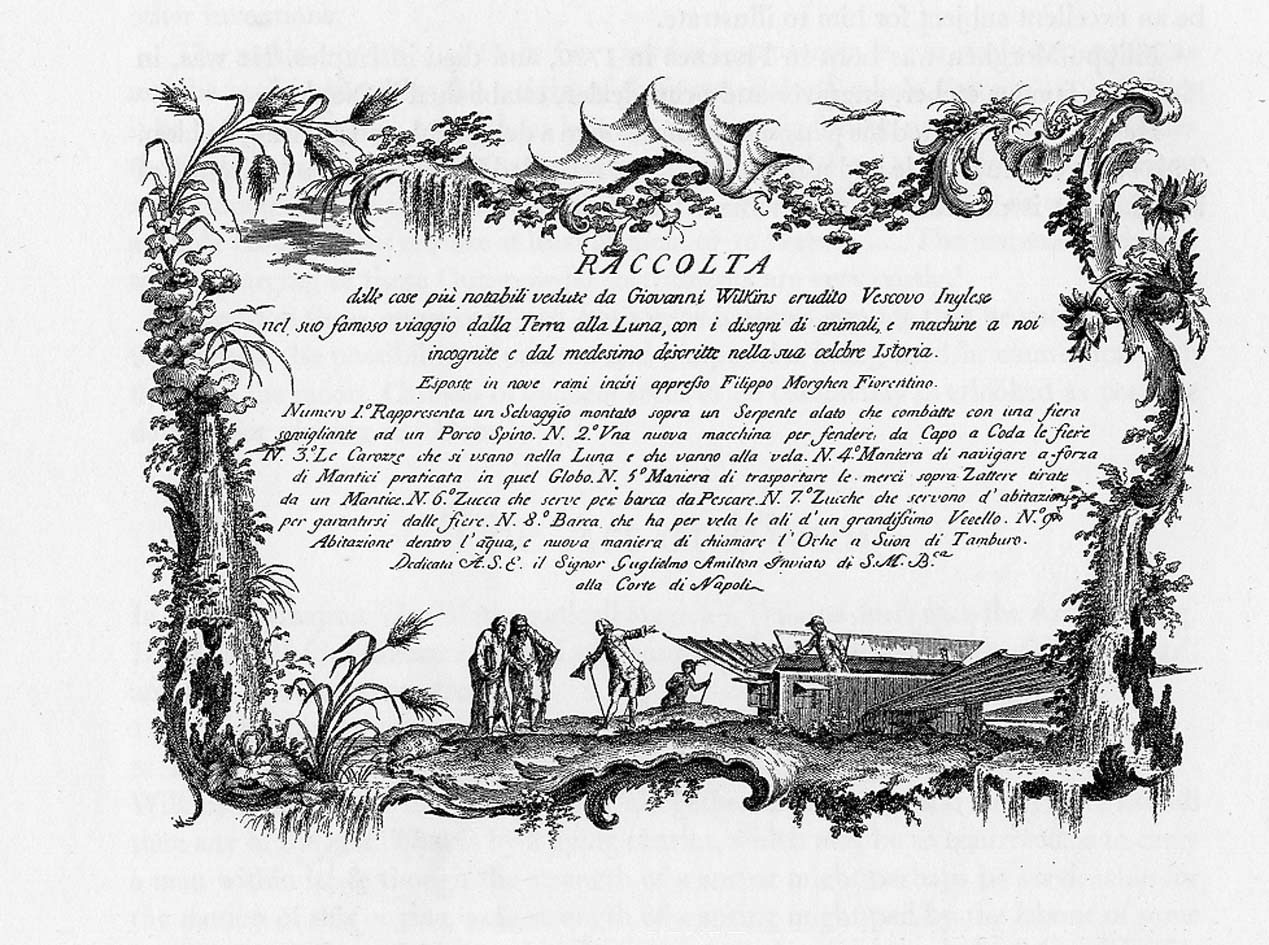 RACCOLTA
delle cose più notabili vedute da Giovanni Wilkins erudito Vescovo Inglese
nel suo famoso viaggio dalla Terra alla Luna, con i disegni di animali, e machine a noi
incognite e dal medesimo descritte nella sua celebre Istoria.
Esposte in nove rami incisi appreſso Filippo Morghen Fiorentino.
Numero 1.º Rappresenta un Selvaggio montato sopra un Serpente alato che combatte con una fiera
somigliante ad un Porco Spino. N. 2.º Vna nuova macchina per fendere, da Capo a Coda le fiere
N. 3.º Le Carozze che si vsano nella Luna e che vanno alla vela. N. 4.º Maniera di navigare a forza
di Mantici praticata in quel Globo. N. 5.º Maniera di trasportare le merci sopra Zattere tirate
da un Mantice. N. 6.º Zucca che serve per barca da Pescare. N. 7.º Zucche che servono d'abitazione
per garantirsi dalle fiere. N. 8.º Barca che ha per vela le ali d'un grandiſsimo Vccello. N.º 9.
Abitazione dentro l'aqua, e nuova maniera di chiamare l'Oche a Suon di Tamburo.
Dedicata A. S. E. il Signor Guglielmo Amilton Inviato di S. M. B.ca
alla Corte di Napoli